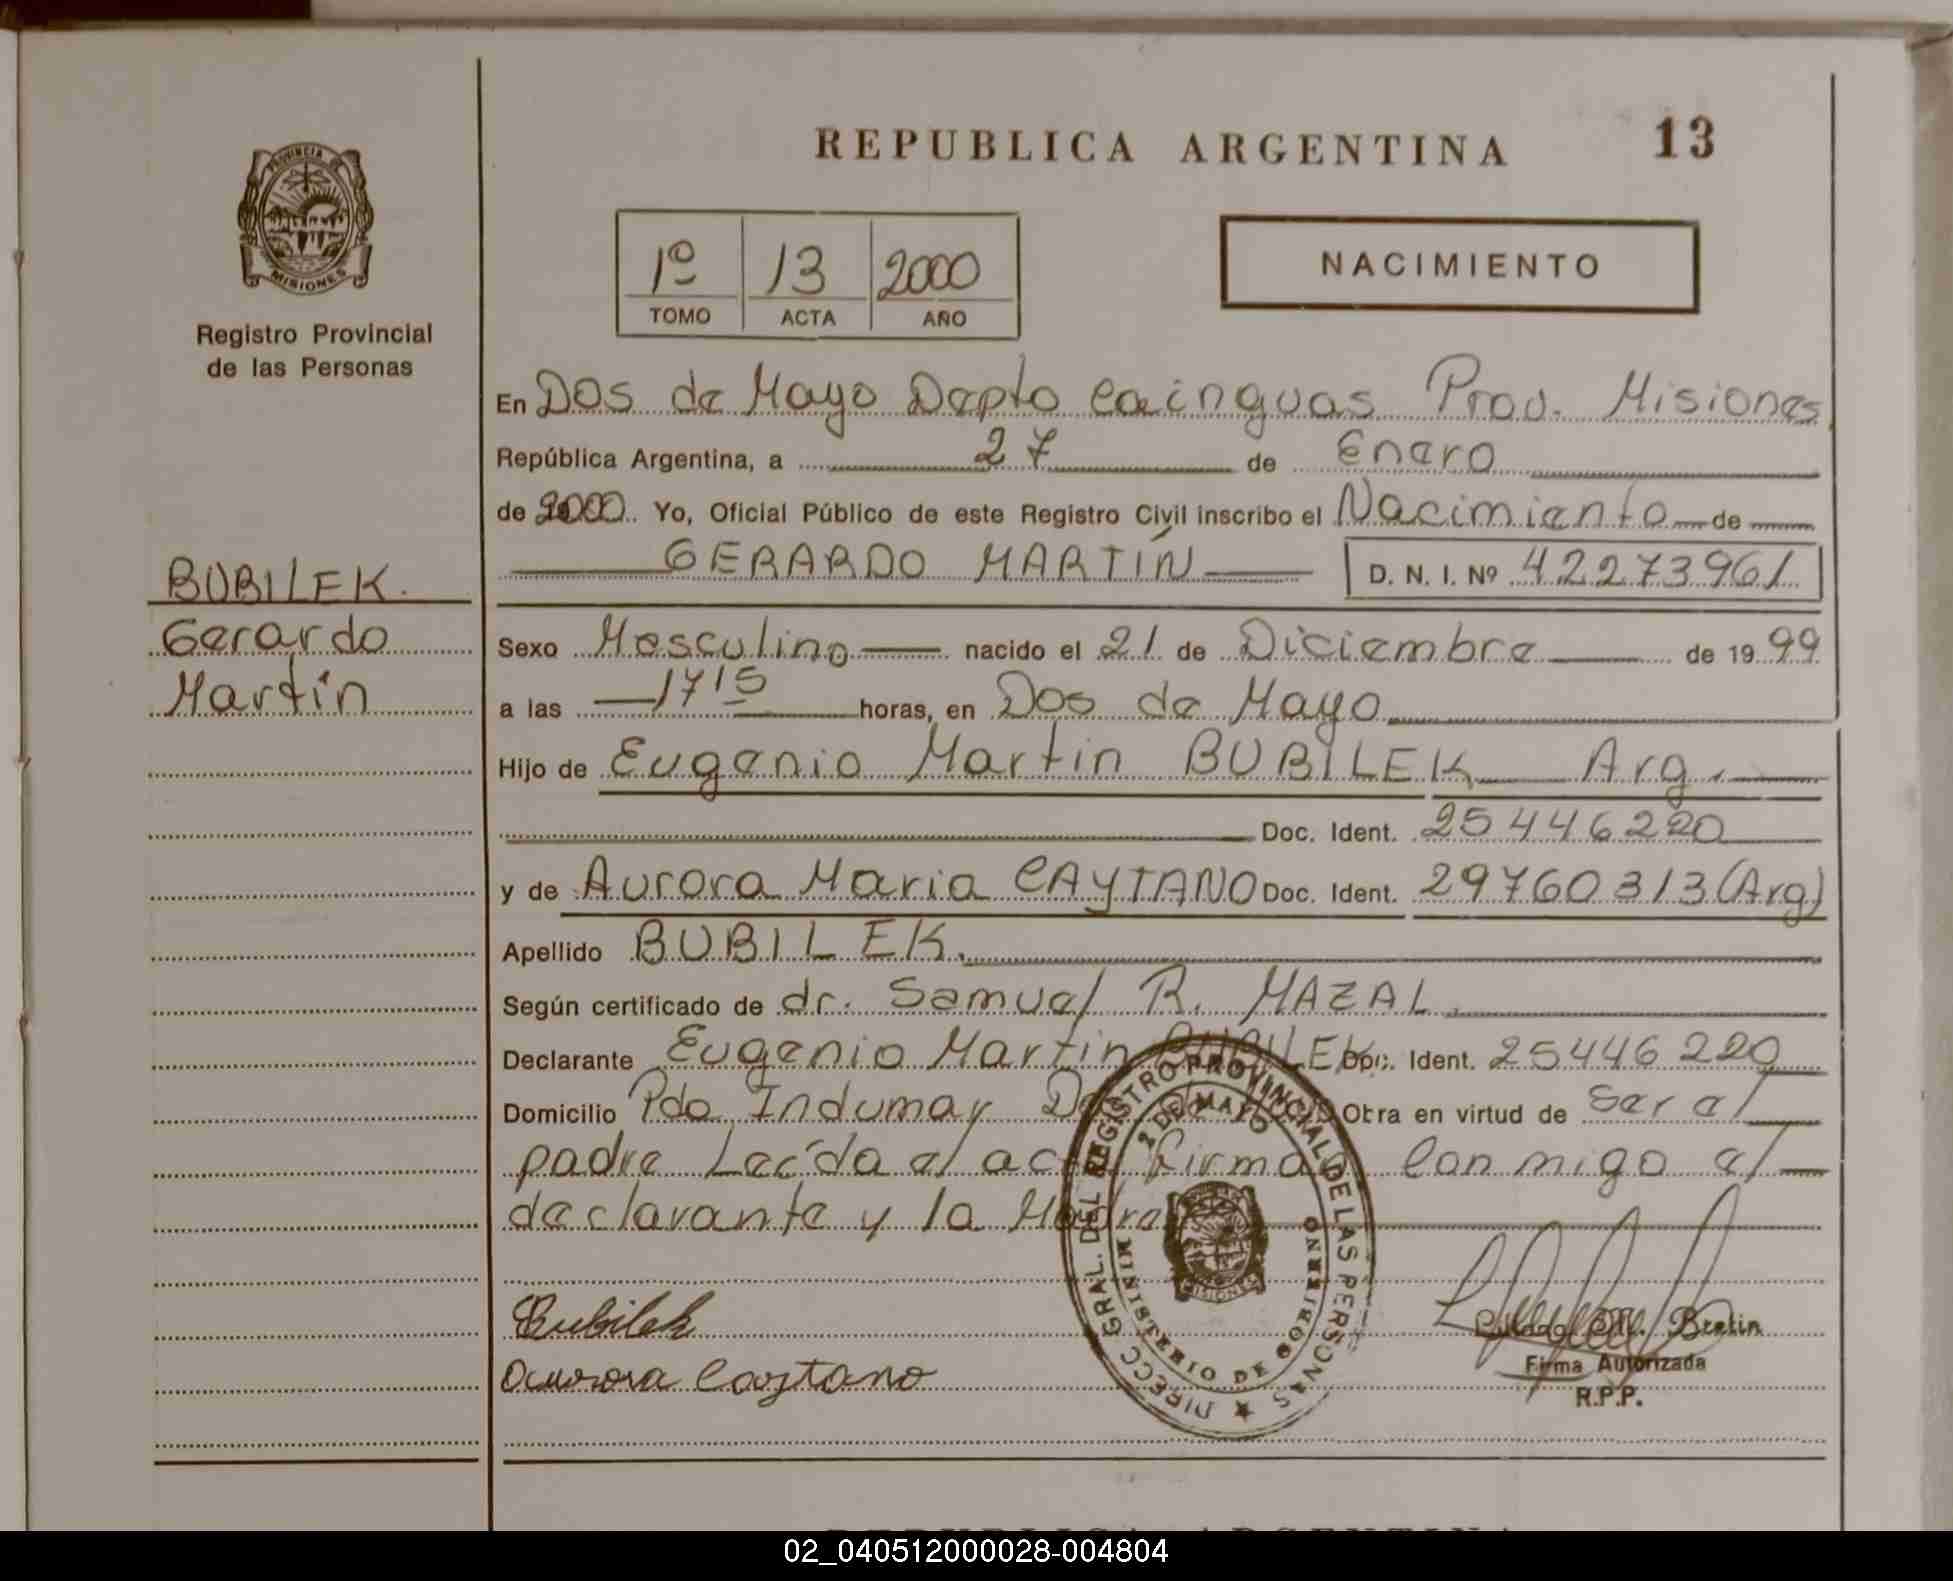 REPUBLICA ARGENTINA 13
PROVINCIA DE MISIONES
Registro Provincial
de las Personas
1º 13 2000
TOMO ACTA AÑO
NACIMIENTO
En Dos de Mayo Depto Cainguas Prov. Misiones
República Argentina, a 27 de Enero
de 2000. Yo, Oficial Público de este Registro Civil inscribo el Nacimiento de
GERARDO MARTÍN D. N. I. Nº 42273961
BUBILEK.
Gerardo
Martín
Sexo Masculino nacido el 21 de Diciembre de 19 99
a las 1715 horas, en Dos de Mayo
Hijo de Eugenio Martin BUBILEK Arg.
Doc. Ident. 25446220
y de Aurora Maria CAYTANO Doc. Ident. 29760313 (Arg)
Apellido BUBILEK.
Según certificado de dr. Samuel R. MAZAL.
Declarante Eugenio Martin BUBILEK Doc. Ident. 25446220
Domicilio Pdo Indumar Dos de Mayo Otra en virtud de Ser el
padre Leída el acta firman Conmigo el
declarante y la Madre
DIRECC GRAL. DEL REGISTRO PROVINCIAL DE LAS PERSONAS
2 DE MAYO
MINISTERIO DE GOBIERNO
MISIONES
Bubilek
Aurora Caytano
Bretin
Firma Autorizada
R.P.P.
REPUBLICA ARGENTINA
02_040512000028-004804